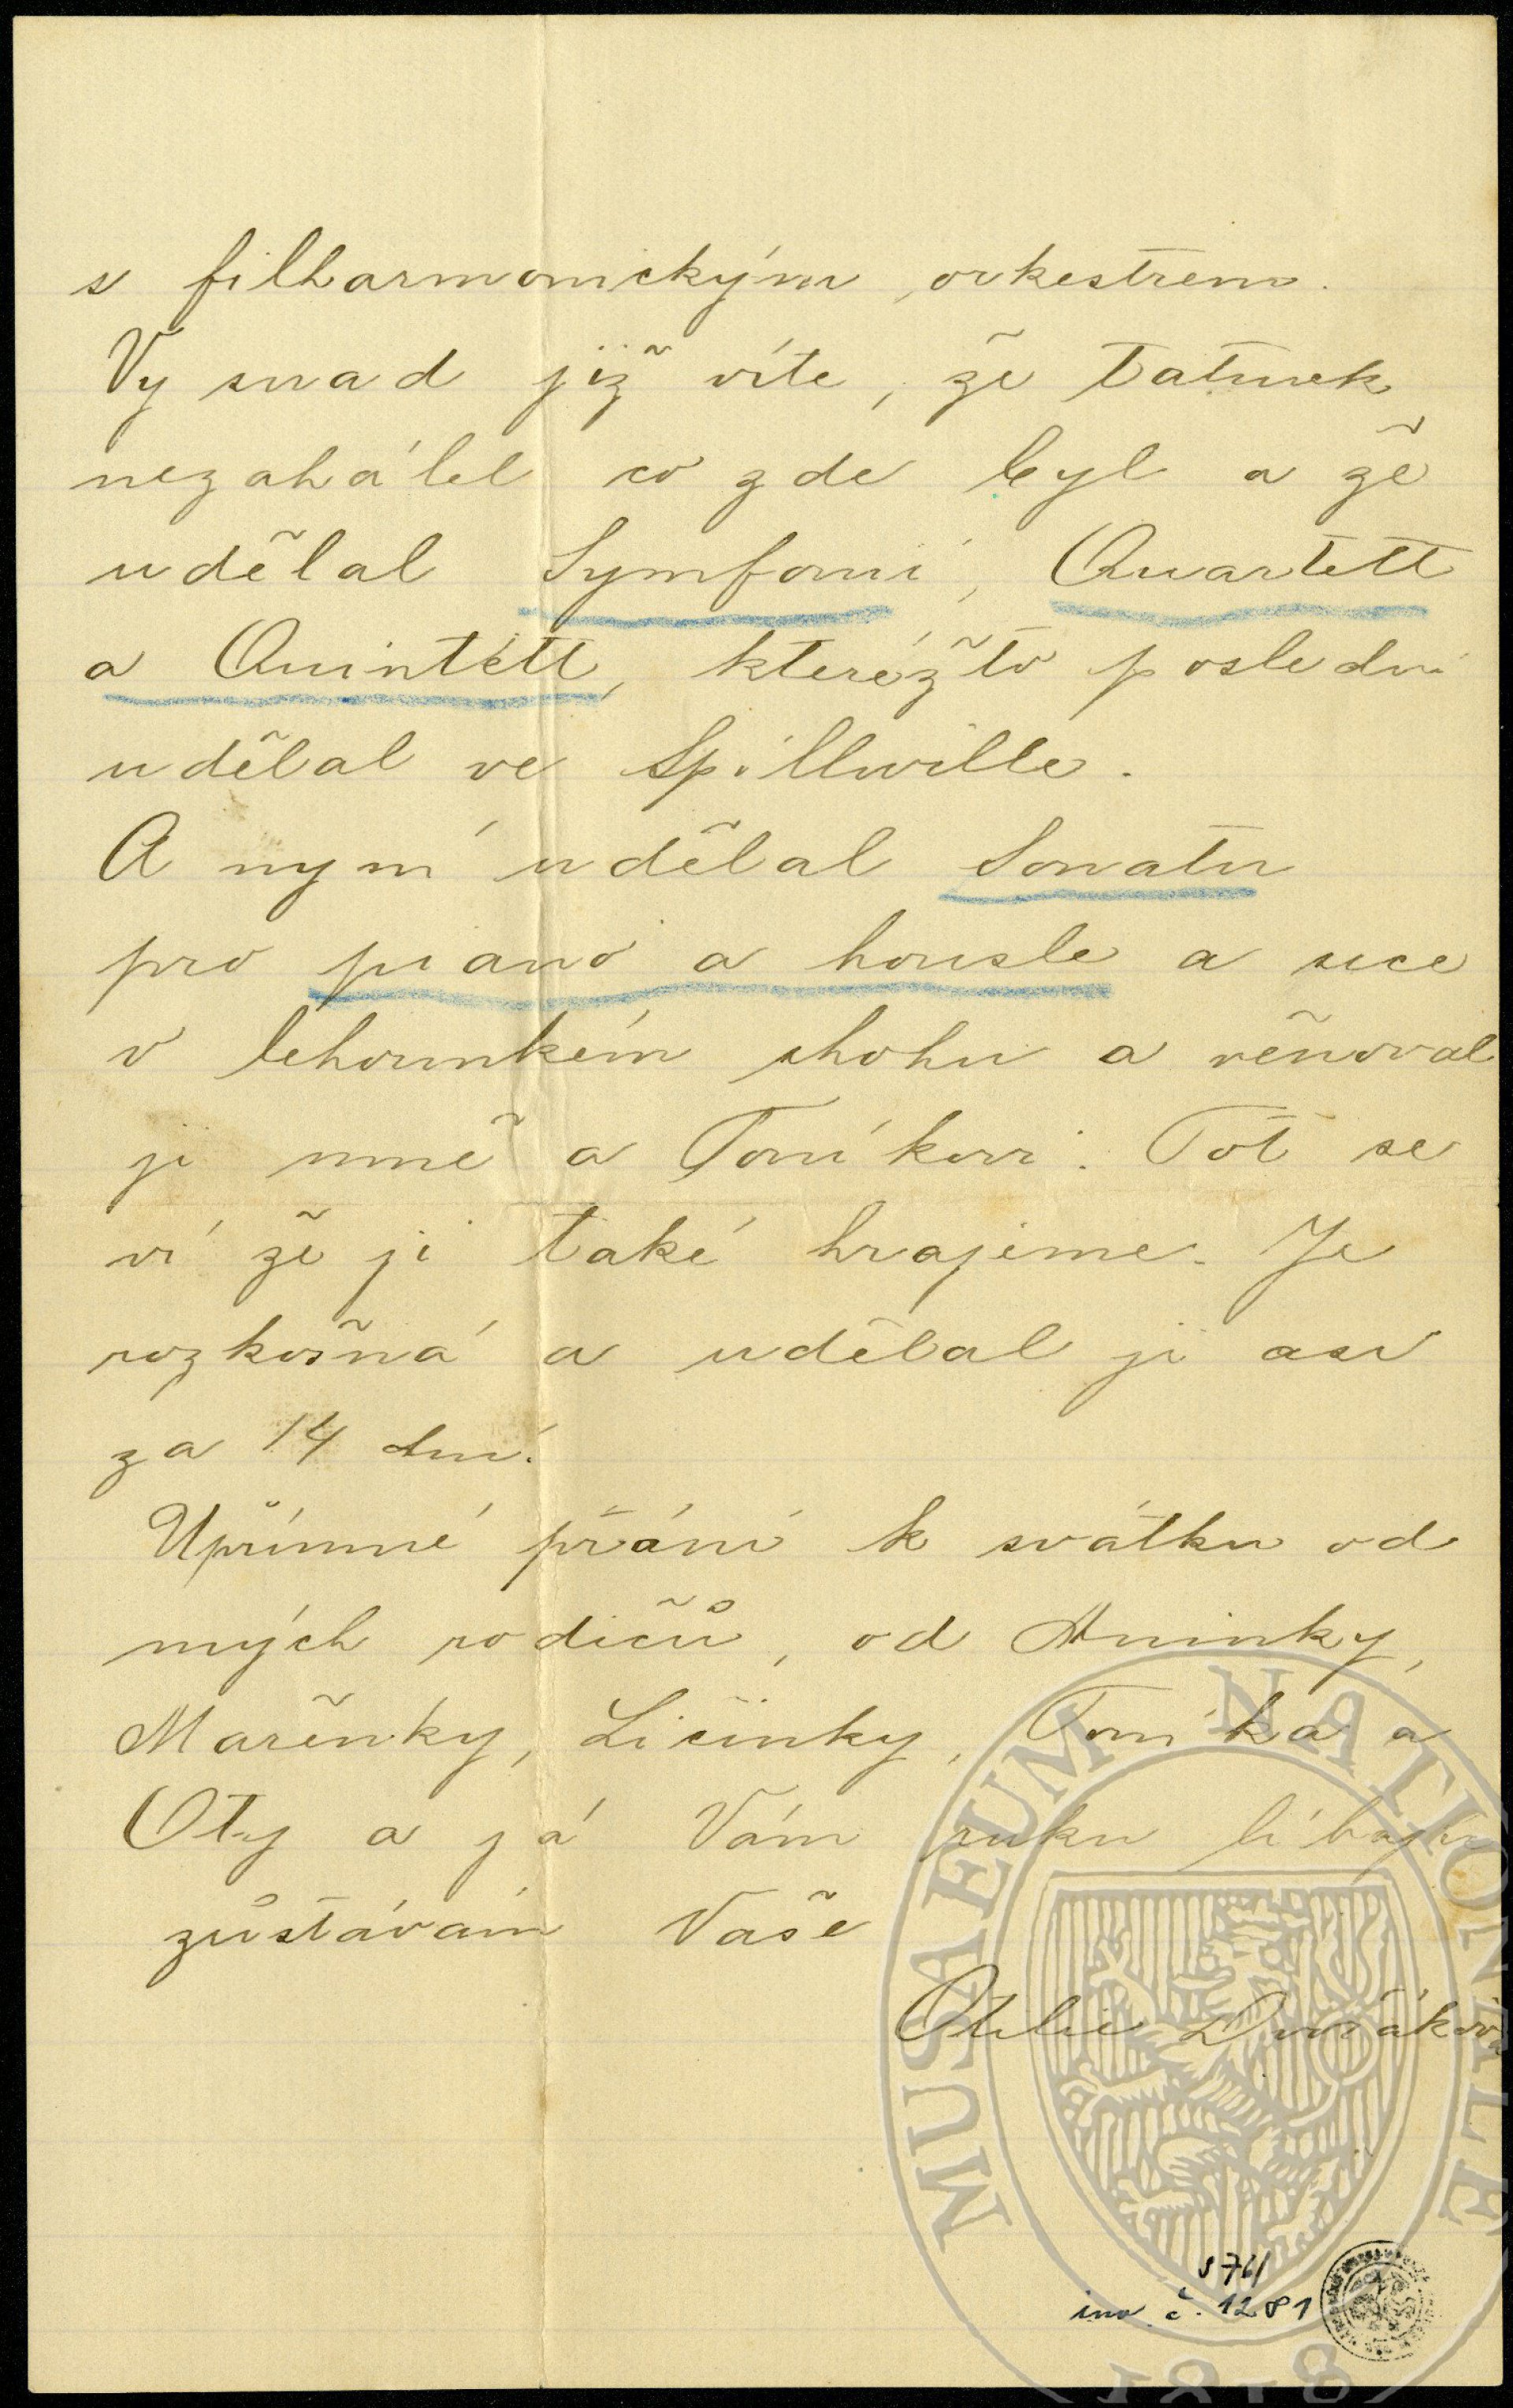 s filharmonickým orkestrem.
Vy snad již víte, že tatínek
nezahálel co zde byl a že
udělal Symfonii, Quartett
a Quintett, kteréžto poslední
udělal ve Spillwille.
A nyní udělal Sonatu
pro piano a housle a sice
v lehounkém slohu a věnoval
ji mně a Toníkovi. Tot se
ví že ji také hrajeme. Je
rozkošná a udělal ji asi
za 14 dní.
Upřímné přání k svátku od
mých rodičů, od Aninky,
Mařenky, Ličinky, Toníka a
Oty a já Vám ruku líbajíc
zůstávám Vaše
Otilie Dvořáková
S 76/
inv. č. 1281
MUSAEUM NATIONALE
1818